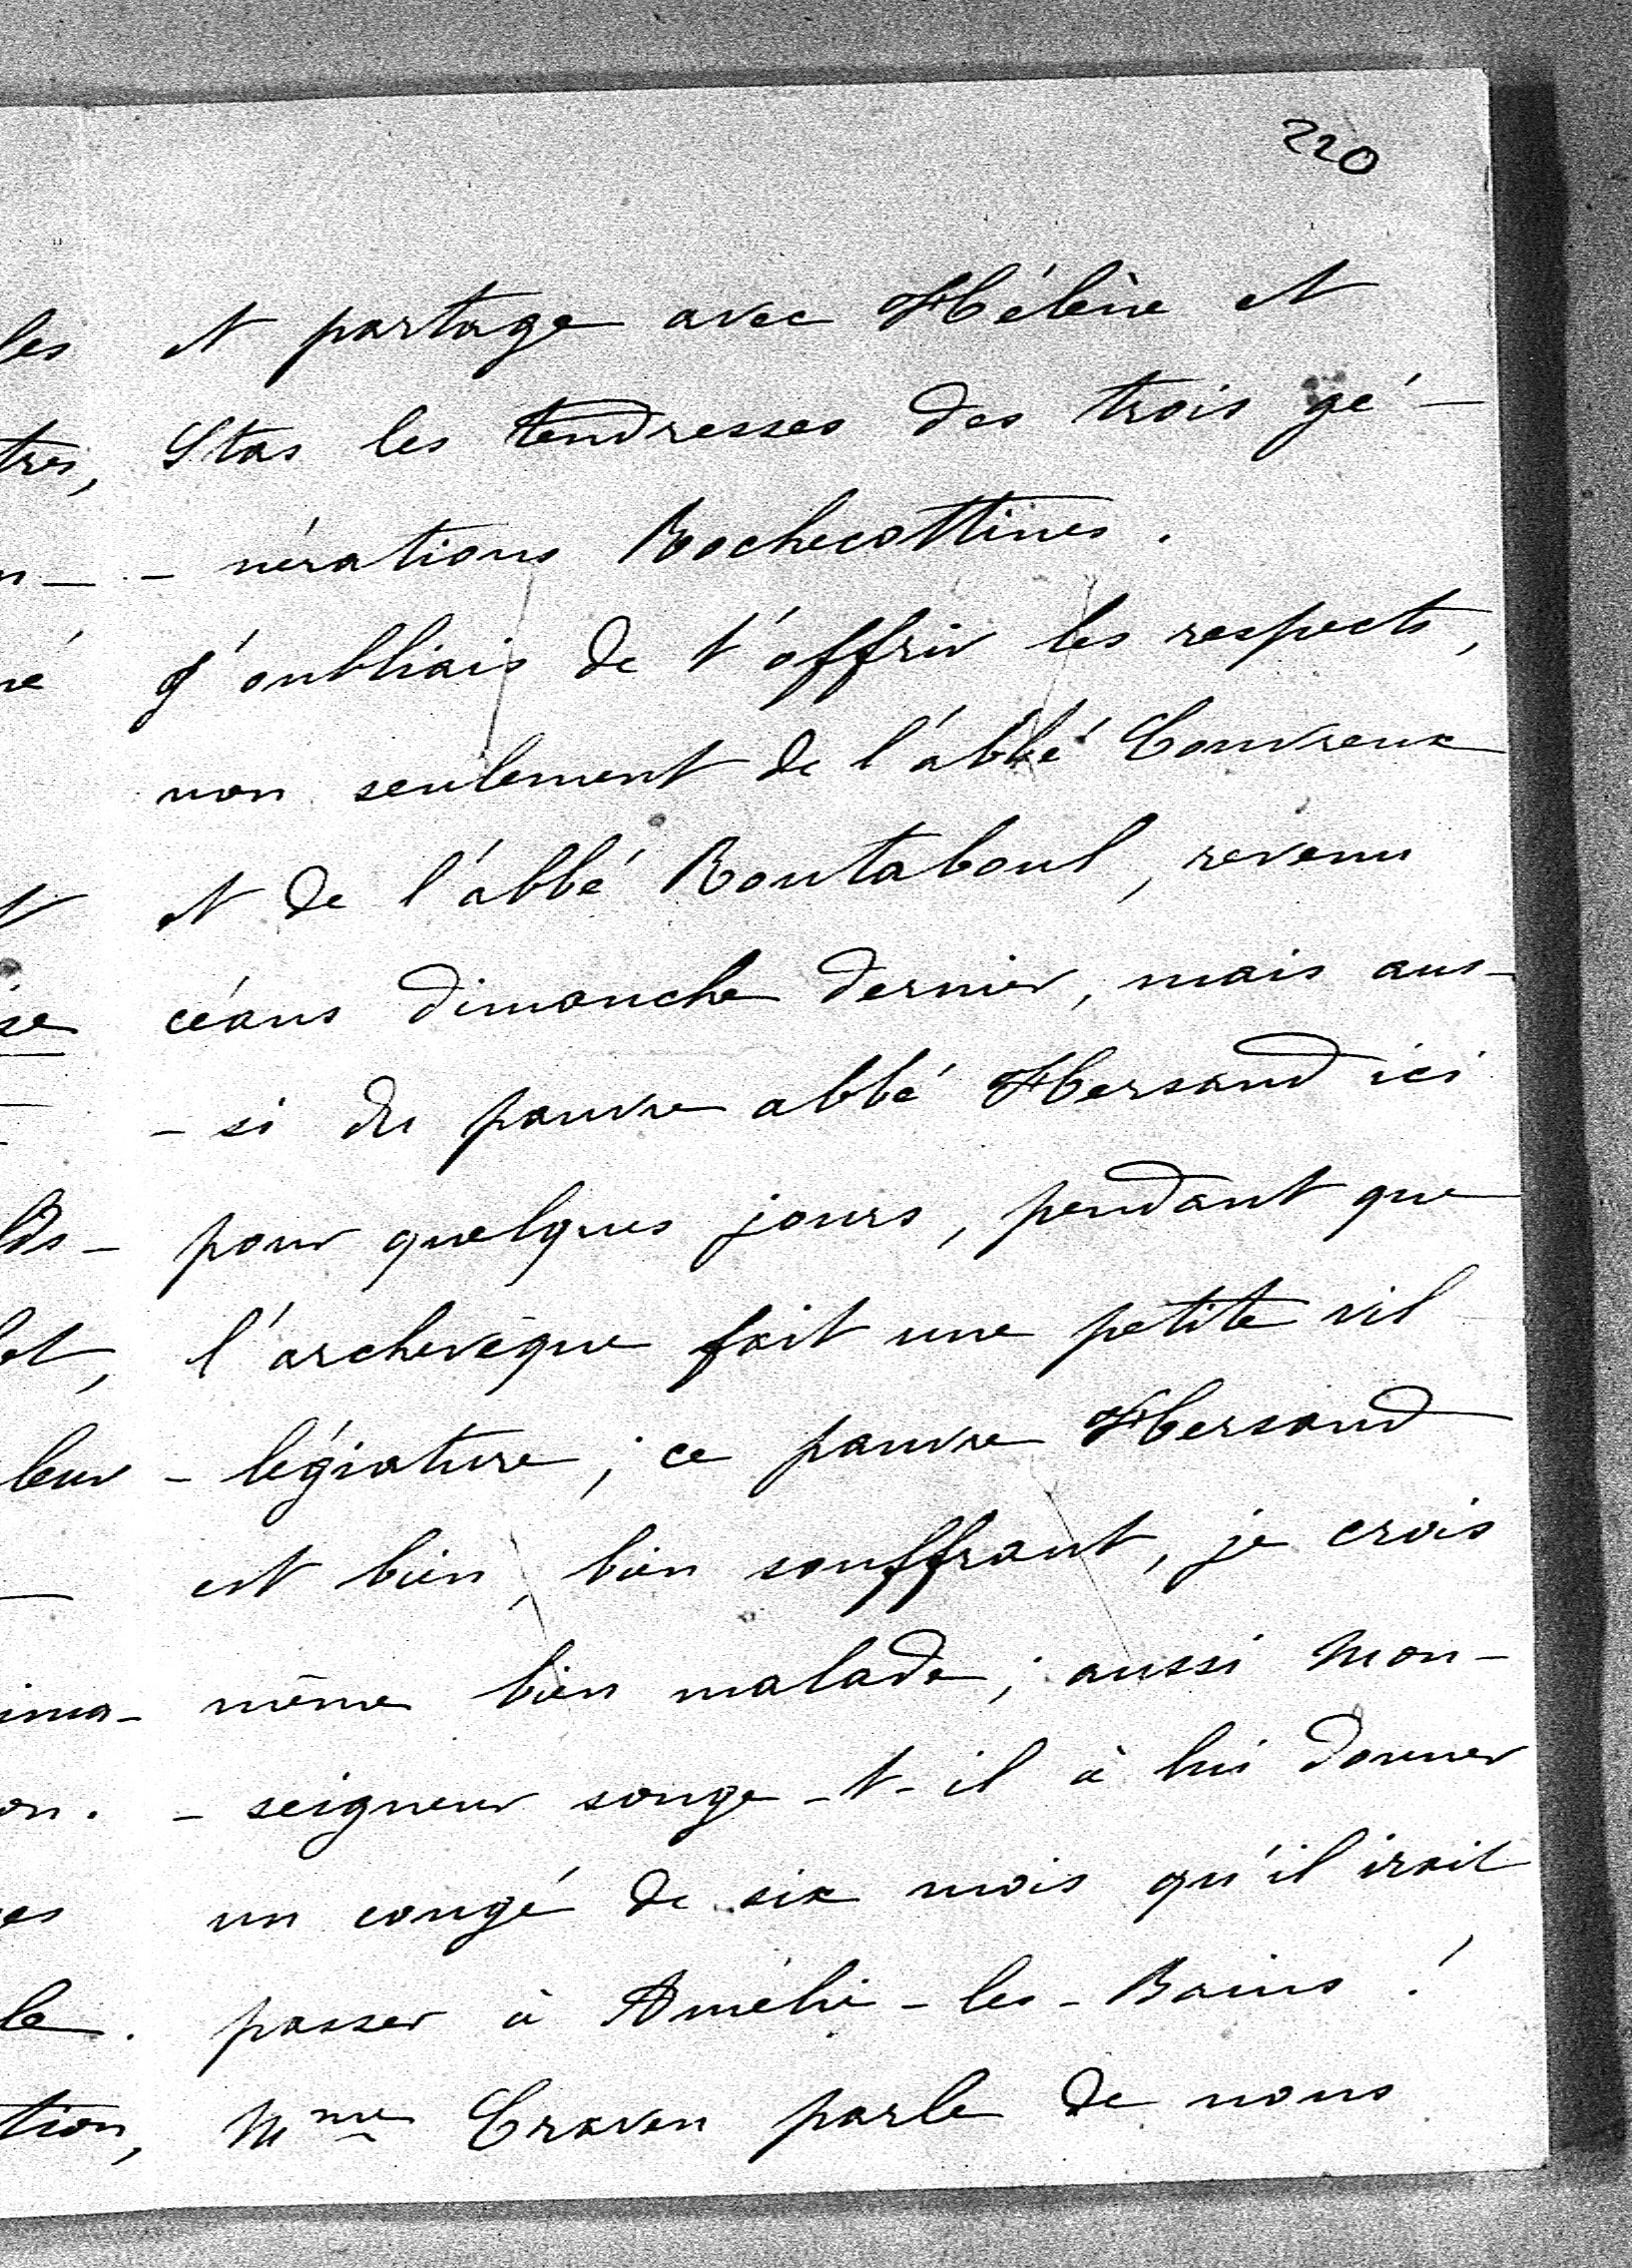 220
et partage avec Hélène et
Stas les tendresses des trois gé-
-nérations Rochecottines.
J'oubliais de t'offrir les respects,
non seulement de l'abbé Couvreux
et de l'abbé Routaboul, revenu
céans dimanche dernier, mais aus-
-si du pauvre abbé Hersand ici
pour quelques jours, pendant que
l'archevêque fait une petite vil
-légiature; ce pauvre Hersand
est bien, bien souffrant, je crois
même bien malade; aussi Mon-
-seigneur songe-t-il à lui donner
un congé de six mois qu'il irait
passer à Amélie-les-Bains!
Mme Craven parle de nous